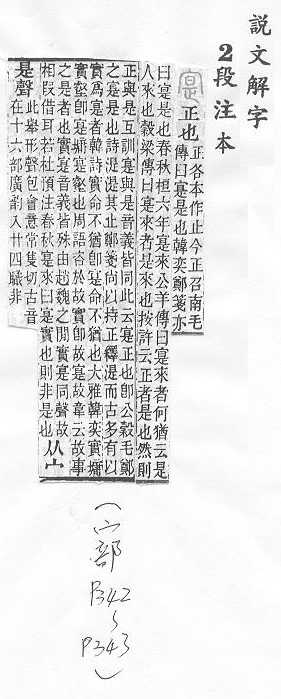 說文解字
2段注本
寔 正也
正各本作止今正召南毛
傳曰寔是也韓奕鄭箋亦
曰寔是也春秋桓六年寔來公羊傳曰寔來者何猶云是
人來也穀梁傳曰寔來者是來也按許云正者是也然則
正與是互訓寔與是音義皆同此云寔正也卽公穀毛鄭
之寔是也詩湜湜其止鄭箋尚以持正釋湜而古多有以
實爲寔者韓詩實命不猶卽寔命不猶也大雅韓奕實墉
實壑卽寔墉寔壑也周語咨於故實卽故寔故韋云故事
之是者也實寔音義皆殊由趙魏之閒實寔同聲故
相叚借耳若杜預注春秋寔來曰寔實也則非是也
从宀
是聲
此舉形聲包會意常隻切古音
在十六部廣韵入廿四職非
(宀部
P342
~
P343
)